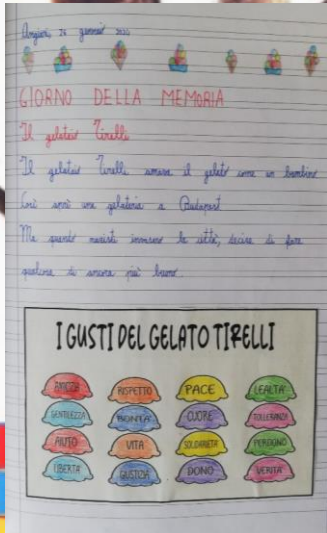 Angiari, 26 gennaio
GIORNO DELLA MEMORIA
Il gelataio Tirelli
Il gelataio Tirelli amava il gelato come un bambino
Così aprì una gelateria a Budapest
Ma quando nazisti invasero la città, decise di fare
qualcosa di ancora più buono
I GUSTI DEL GELATO TIRELLI
AMICIZIA RISPETTO PACE LEALTA'
GENTILEZZA BONTA' CUORE TOLLERANZA
AIUTO VITA SOLIDARIETA' PERDONO
LIBERTA' GIUSTIZIA DONO VERITA'